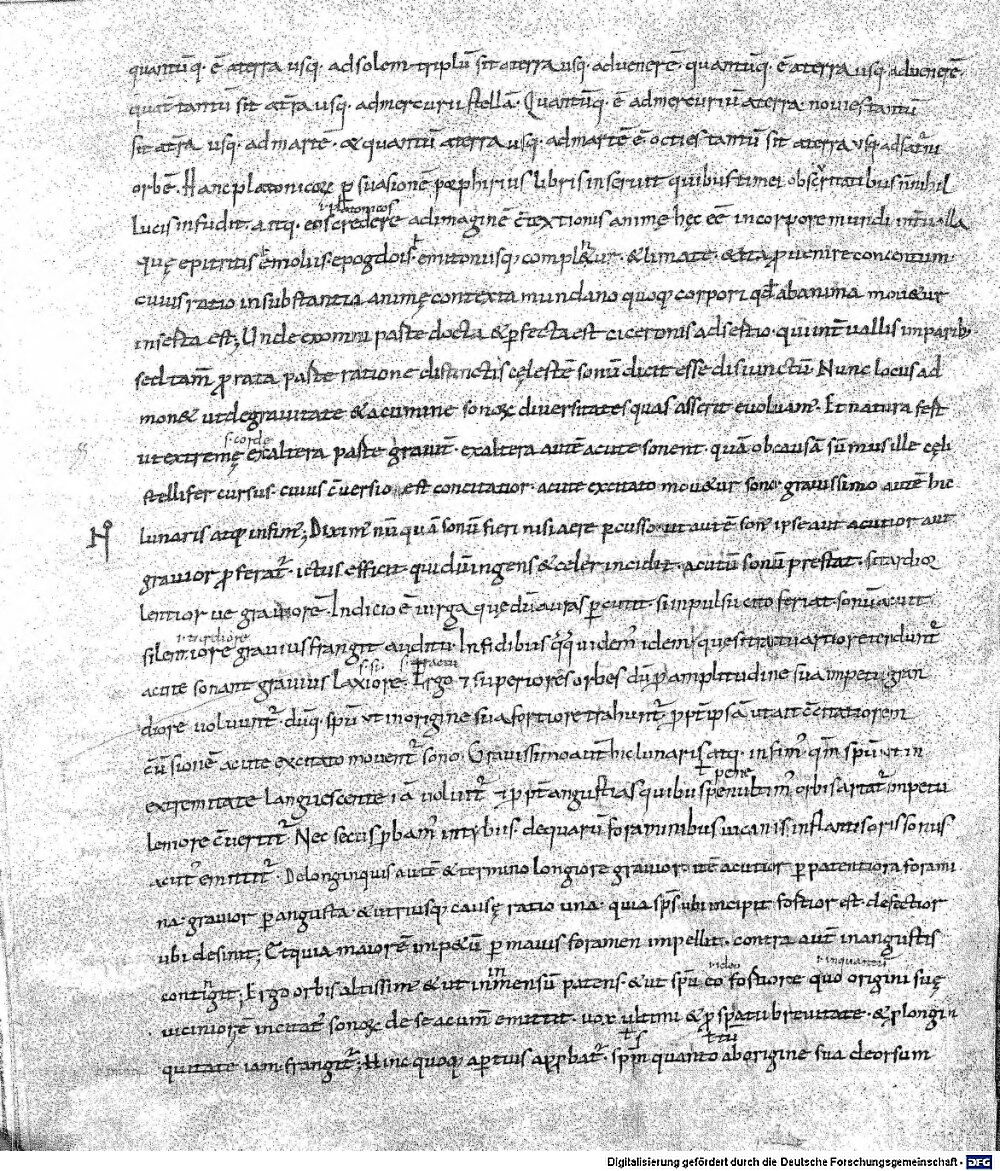 quantūq· ē aterra usq· adsolem triplū sit aterra usq· aduenerē· quantūq· ē aterra usq· aduenerē
quat̄ tantū sit atr̄a usq· admercurii stellā· Quantūq· ē admercuriū aterra nouies tantū
sit atr̄a usq· admartē· & quantū aterra usq· admartē ē octies tantū sit aterra usq· adsat̄ni
orbē· Hanc platonicoꝝ ꝑsuasionē porphirius libris inseruit quibus timei obscuritatibus n̄nihil
lucis infudit· atq· eos credere adimaginē c̄textionis animę hęc eē incorpore mundi int̄ualla
ł platonicos
quę epitritis emiolus· epogdois· emitoniisq· compl&ur· & limate· & ita ꝓuenire concentum
cuius ratio insubstantia animę contexta mundano quoq· corpori qd̄ abanima mou&ur
inserta est; Unde exomni parte docta & ꝑfecta est ciceronis adsertio· qui int̄uallis imparib;
sed tam̄ ꝓ rata parte ratione distinctis cęlestē sonū dicit esse disiunctū Nunc locus ad
mon& ut degrauitate & acumine sonoꝝ diuersitates quas asserit euoluam̄· Et natura fert
ut extremę exaltera parte grauit̄· exaltera autē acute sonent· quā obcausā sūmus ille cęli
stellifer cursus· cuius c̄uersio est concitatior· acute excitato mou&ur sono· grauissimo autē hic
lunaris atq· infim̄; Diximꝰ nūquā sonū fieri nisi aere ꝑcusso· ut autē sonꝰ ipse aut acutior aut
grauior ꝓferat̄· ictus efficit qui dū ingens & celer incidit· acutū sonū prestat· si tardior
lentior ue grauiorē· Indicio ē uirga quę dū auras ꝑcutit· si impulsu cito feriat sonū acuit
ł tardiore
si leniore grauius frangit auditū· Infidibus qq· uidemꝰ idem· quę si tractu artiore tendunt̄
acute sonant grauius laxiore· Ergo & superiores orbes dū ꝓ amplitudine sua impetu gran
diore uoluunt̄· dūq· spū ut inorigine sua fortiore trahunt̄· ꝓpt̄ ipsā ut ait c̄citatiorem
c̄uersionē acute excitato mouent̄ sono· Grauissimo aut̄ hic lunaris atq· infimꝰ· qm̄ spū ut in
extremitate languescente iā uoluit̄· & ꝓpt̄ angustias quibus penultimꝰ orbis artat̄ impetu
leniore c̄uertit̄· Nec secus ꝓbamꝰ in tybiis· dequarū foraminibus uicinis inflantis oris sonus
acutꝰ emittit̄· Delonginquis autē & termino longiore grauior· itē acutior ꝑ patentiora forami
na· grauior ꝑ angusta· & utriusq· causę ratio una· quia sps̄ ubi incipit fortior est· defectior
ubi desinit; Et quia maiorē imp&ū ꝑ maius foramen impellit· contra aut̄ inangustis
contingit; Ergo orbis altissimꝰ & ut inmensū patens· & ut spū eo fortiore quo origini suę
uiciniorē incitat̄ sonoꝝ de se acum̄ emittit· uox ultimi & ꝓ spatii breuitate· & ꝓ longin
quitate iam frangit̄; Hinc quoq· aꝑtius approbat̄· spm̄ quanto aborigine sua deorsum
Digitalisierung gefördert durch die Deutsche Forschungsgemeinschaft - DFG